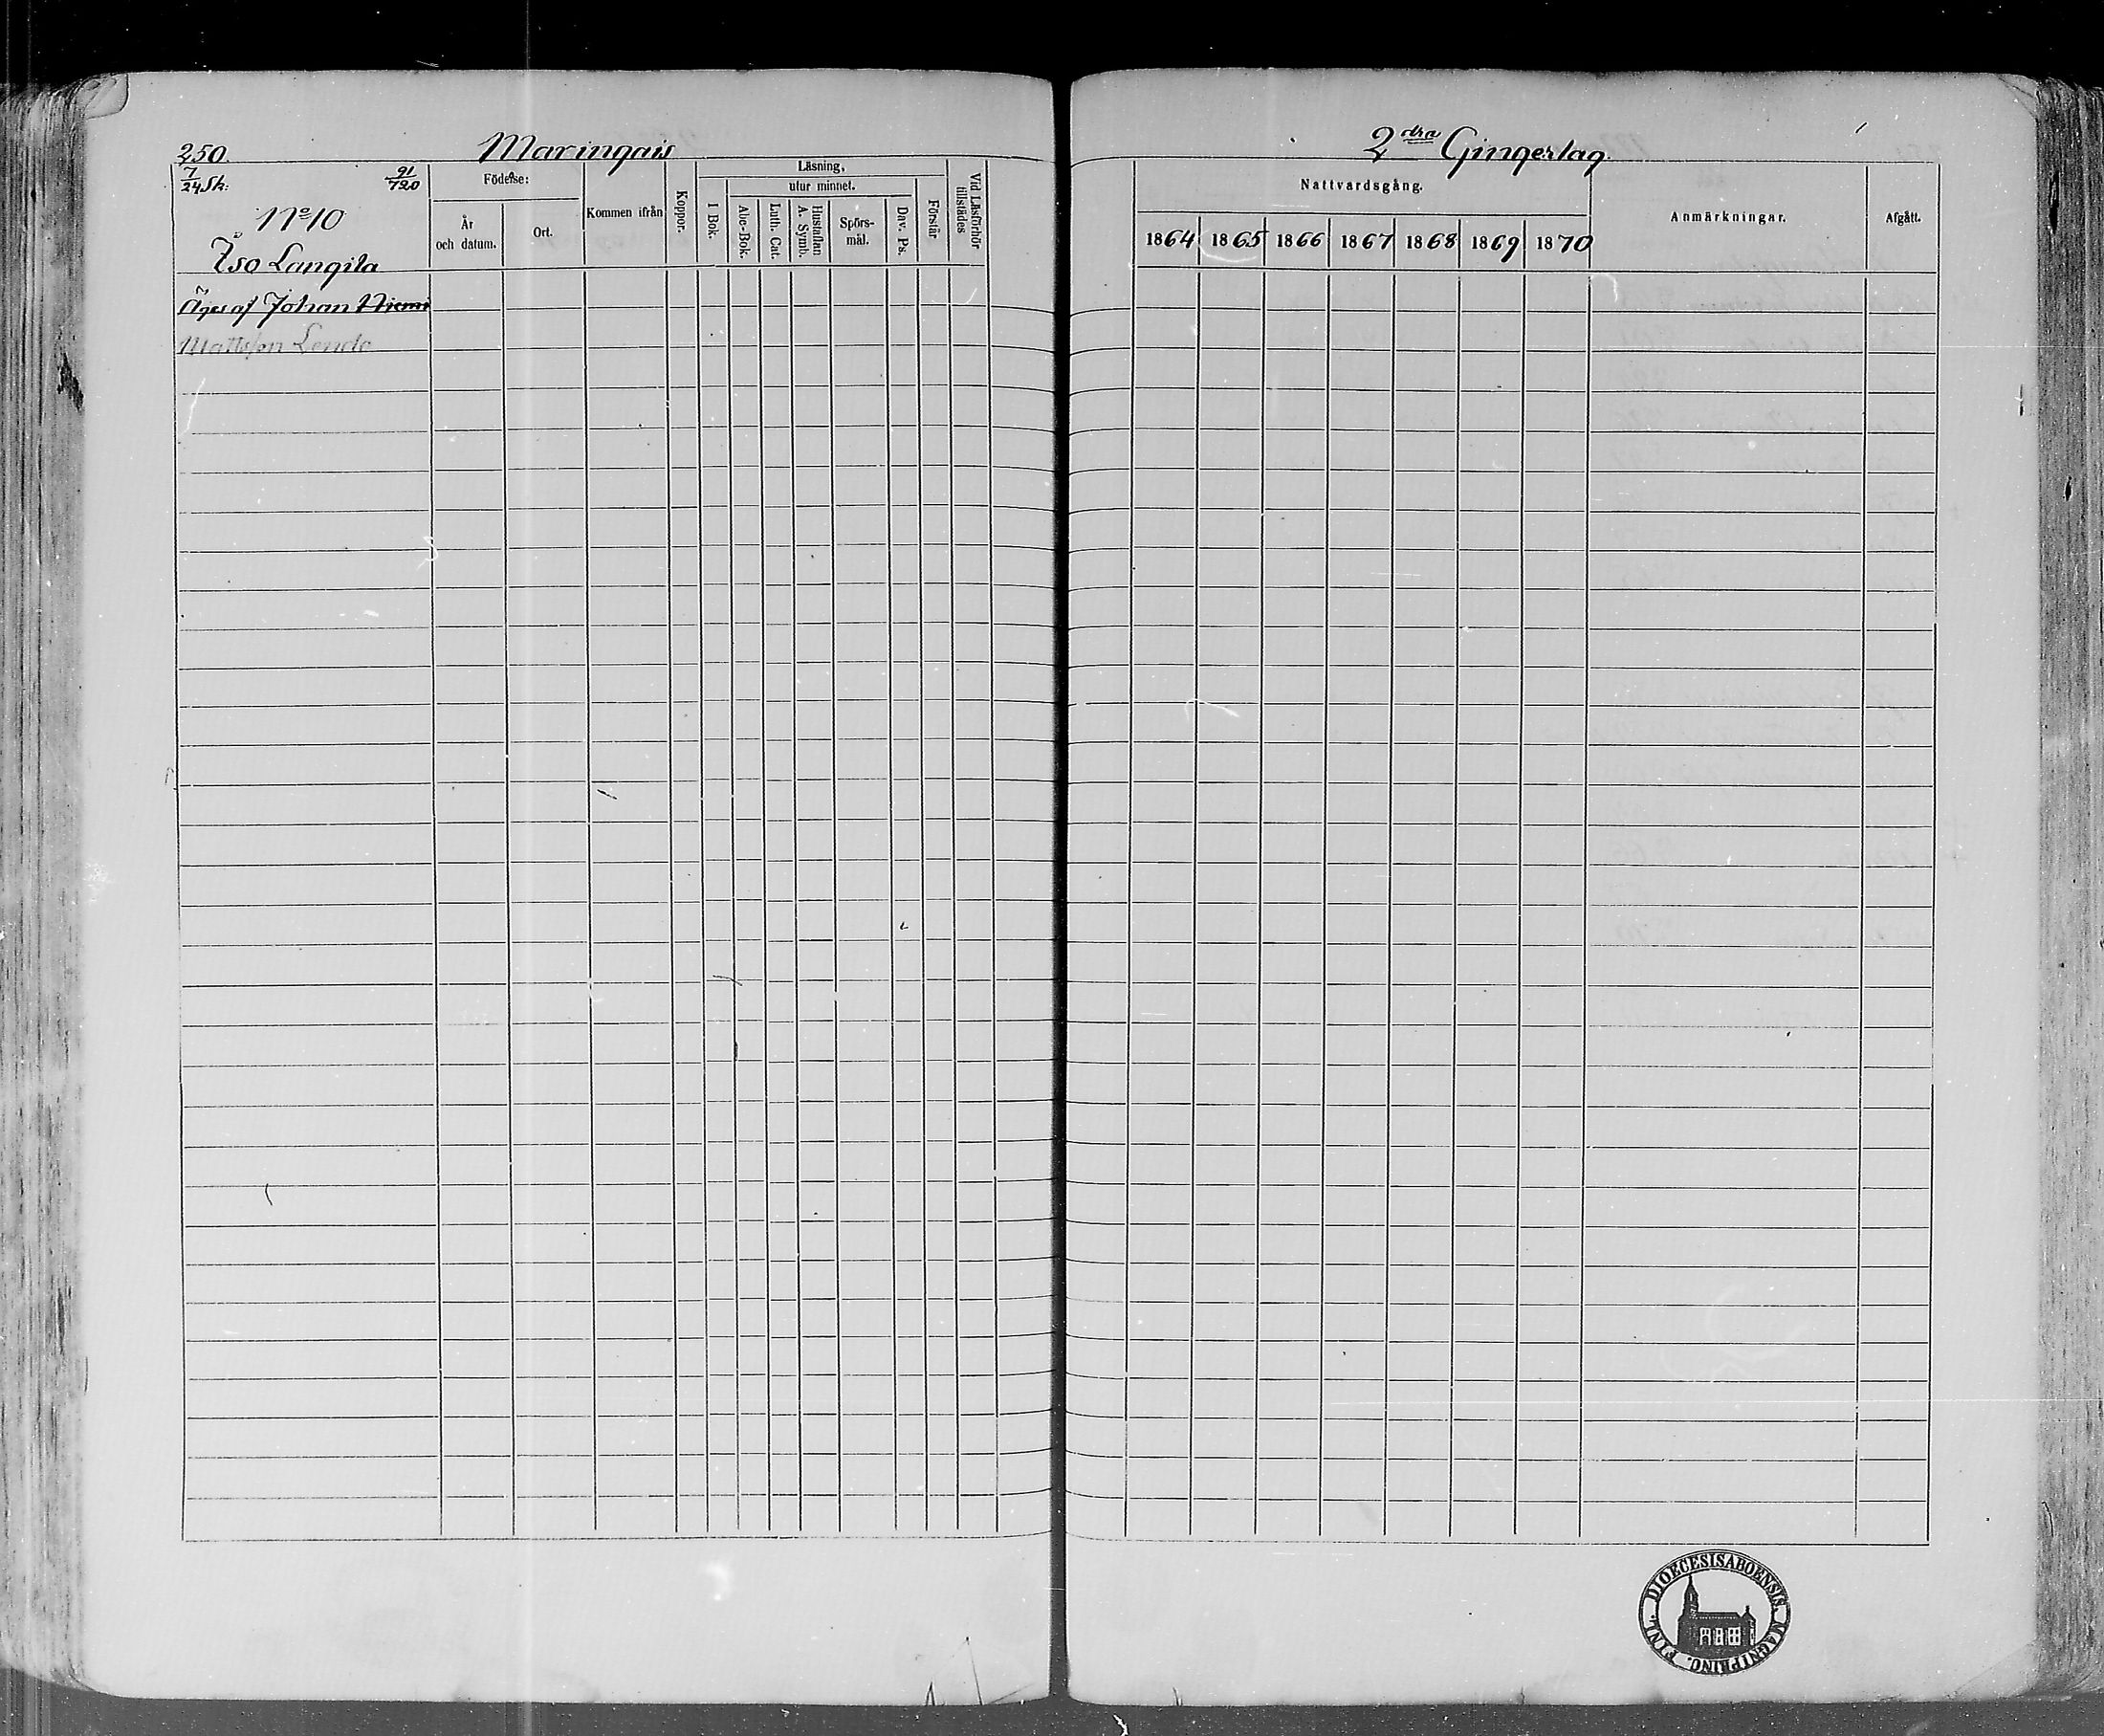 250. Maringais
7/24 Sk: 91/720
No 10
Iso Långila
Äges af Johan Niemi
Mattsson Lendo
Födelse:
År och datum.
Ort.
Kommen ifrån
Koppor.
Läsning,
I Bok.
utur minnet.
Abc-Bok.
Luth. Cat.
Hustaflan A. Symb.
Spörs-mål.
Dav. Ps.
Förstår
Vid Läsförhör tillstädes
2dra Gingerlag.
Nattvardsgång.
1864 1865 1866 1867 1868 1869 1870
Anmärkningar.
Afgått.
DIOECESIS ABOENSIS. MAGNI PRINC. FINL.